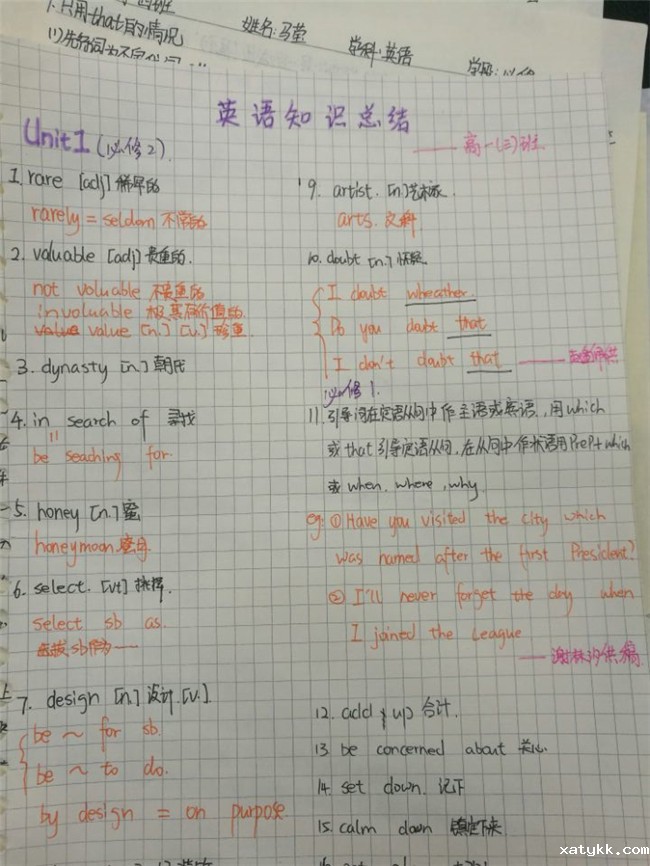 1.只用that的情况
姓名:马莹
学科:英语
英语知识总结
Unit1(必修2).
——高一(三)班
1.rare [adj]稀罕的
rarely = seldom 不常的
2.valuable [adj]贵重的.
not valuable 不贵重的
involuable 极其有价值的
value value [n.] [v.] 珍重
3.dynasty [n.]朝代
4.in search of 寻找
=
be seaching for
5.honey [n.]蜜
honeymoon.蜜月
6.select. [vt]挑择.
select sb as.
选拔sb作为——
7.design [n.]设计.[v.].
be ~ for sb.
be ~ to do.
by design = on purpose
9. artist. [n.]艺术家.
arts. 文科
10.doubt [n.]怀疑
I doubt wheather.
Do you doubt that
I don't doubt that
必修1.
11.引导词在定语从句中作主语或宾语,用which
或that引导定语从句,在从句中作状语用Prep+which
或when.where,why
eg:①Have you visited the city which
was named after the first President?
②I'll never forget the day when
I joined the League
——谢林沙供稿
12.add up 合计.
13 be concerned about 关心.
14. set down. 记下
15.calm down 镇定下来
xatykk.com